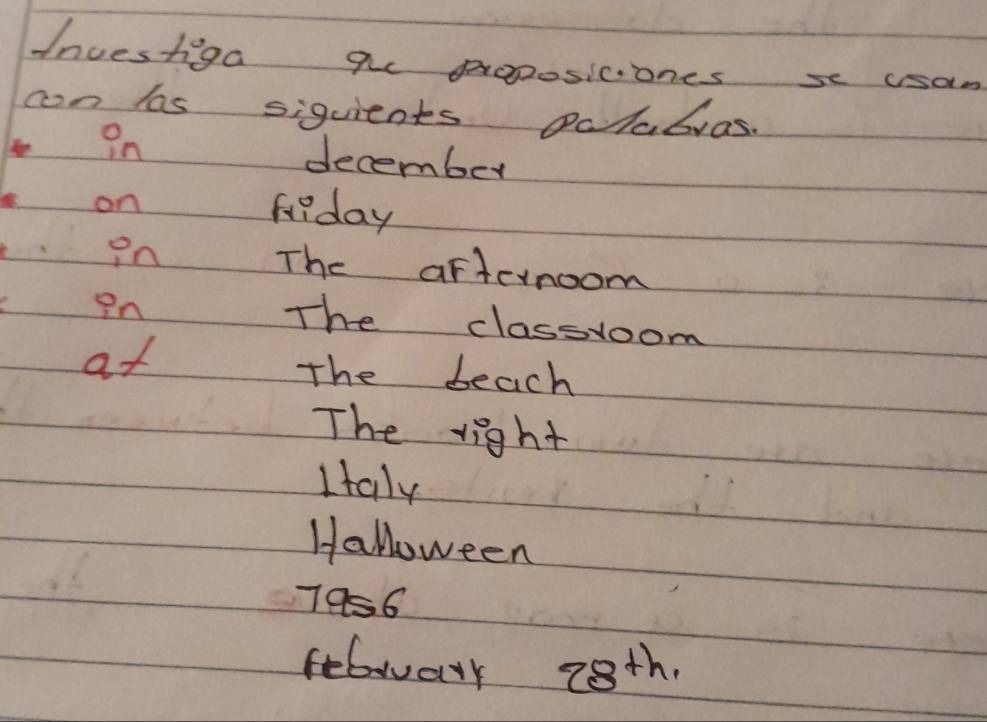 Investiga que proposiciones se usan
con las siguientes palabras.
in december
on friday
in The afternoom
in The classroom
at The beach
The right
Italy
Halloween
1956
february 28th.